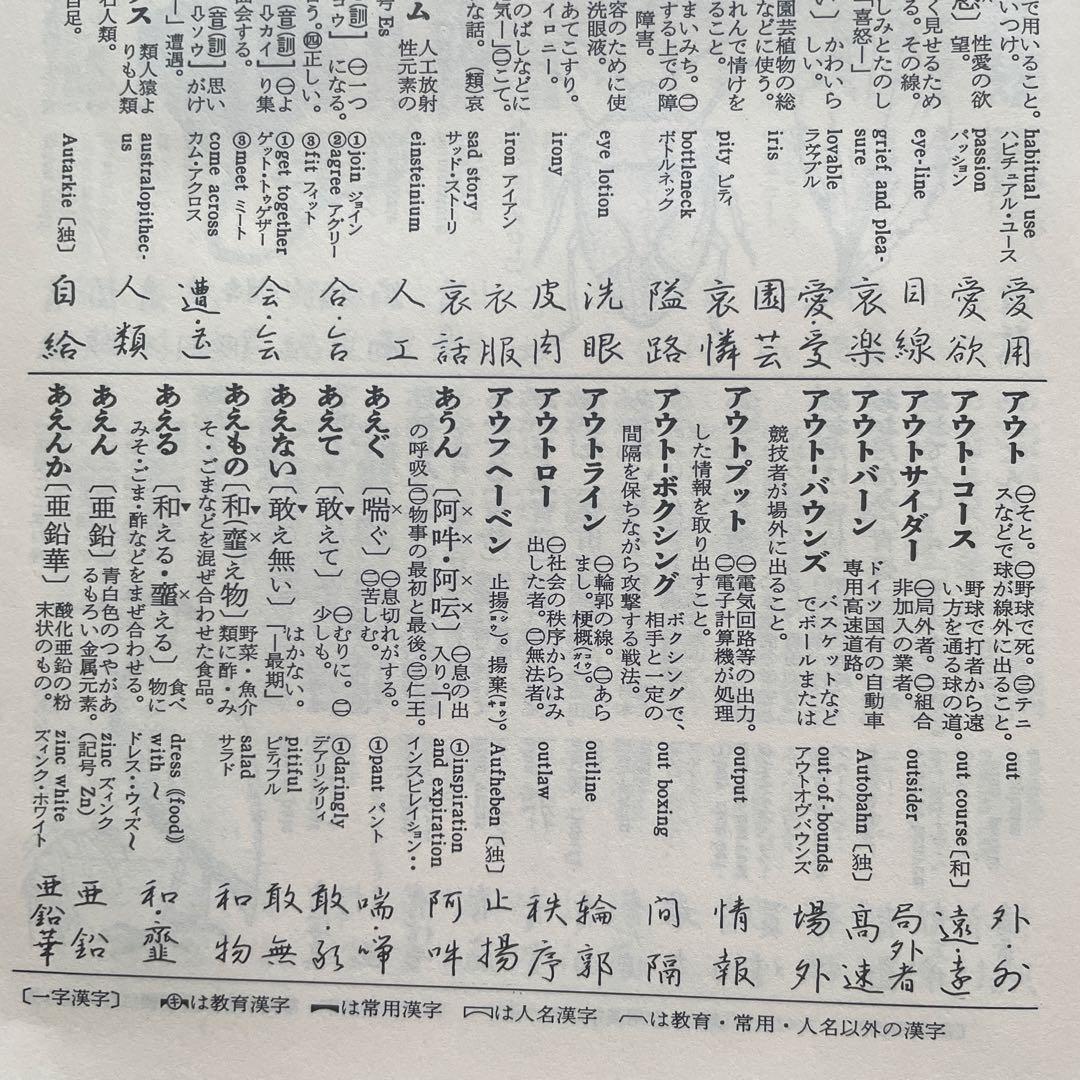 で用いること。
いつけ。
habitual use
ハビチュアル・ユース
愛用
性愛の欲
望。
passion
パッション
愛欲
く見せるため
る。その線。
eye-line
目線
しみとたのし
「喜怒―」
grief and plea-
sure
哀楽
かわいら
しい。
lovable
ラヴァブル
愛・愛
園芸植物の総
などに使う。
iris
園芸
れんで情けを
ること。
pity ピティ
哀憐
まいみち。㊁
する上での障
障害。
bottleneck
ボトルネック
隘路
容のために使
洗眼液。
eye lotion
洗眼
あてこすり。
イロニー。
irony
皮肉
のばしなどに
気―」㊁こて。
iron アイアン
衣服
な話。(類)哀
sad story
サッド・ストーリ
哀話
ム 人工放射
性元素の
号 Es
einsteinium
人工
[訓]㊀一つ
ョウ]になる。
う。㊃正しい。
①join ジョイン
②agree アグリー
③fit フィット
合・合
[音(訓)]㊀よ
⇨カイ]り集
会する。
①get together
ゲット・トゥゲザー
③meet ミート
会・会
[音(訓)]思い
⇨ソウ]がけ
―」遭遇。
come across
カム・アクロス
遭・遭
ス 類人猿よ
りも人類
古人類。
australopithec-
us
人類
自足。
Autarkie〔独〕
自給
アウト ㊀そと。㊁野球で死。㊂テニ
スなどで球が線外に出ること。
out
外・外
アウト-コース 野球で打者から遠
い方を通る球の道。
out course〔和〕
遠・遠
アウトサイダー ㊀局外者。㊁組合
非加入の業者。
outsider
局外者
アウトバーン ドイツ国有の自動車
専用高速道路。
Autobahn〔独〕
高速
アウト-バウンズ バスケットなど
でボールまたは
競技者が場外に出ること。
out-of-bounds
アウトオヴバウンズ
場外
アウトプット ㊀電気回路等の出力。
㊁電子計算機が処理
した情報を取り出すこと。
output
情報
アウト-ボクシング ボクシングで、
相手と一定の
間隔を保ちながら攻撃する戦法。
out boxing
間隔
アウトライン ㊀輪郭の線。㊁あら
まし。梗概(ガイ)。
outline
輪郭
アウトロー ㊀社会の秩序からはみ
出した者。㊁無法者。
outlaw
秩序
アウフヘーベン 止揚(ヨウ)。揚棄(ヨウキ)。
Aufheben〔独〕
止揚
あうん〔阿吽・阿呍〕㊀息の出
入り。「―
の呼吸」㊁物事の最初と最後。㊂仁王。
①inspiration
and expiration
インスピレイション・・
阿吽
あえぐ〔喘ぐ〕㊀息切れがする。
㊁苦しむ。
①pant パント
喘・喘
あえて〔敢えて〕㊀むりに。㊁
少しも。
①daringly
デアリングリィ
敢・敢
あえない〔敢え無い〕はかない。
「―最期」
pitiful
ピティフル
敢無
あえもの〔和(韲)え物〕野菜・魚介
類に酢・み
そ・ごまなどを混ぜ合わせた食品。
salad
サラド
和物
あえる〔和える・韲える〕食べ
物に
みそ・ごま・酢などをまぜ合わせる。
dress《food》
with ～
ドレス・ウィズ～
和・韲
あえん〔亜鉛〕青白色のつやがあ
るもろい金属元素。
(記号 Zn)
zinc ズィンク
亜鉛
あえんか〔亜鉛華〕酸化亜鉛の粉
末状のもの。
zinc white
ズィンク・ホワイト
亜鉛華
〔一字漢字〕 は教育漢字 は常用漢字 は人名漢字 は教育・常用・人名以外の漢字